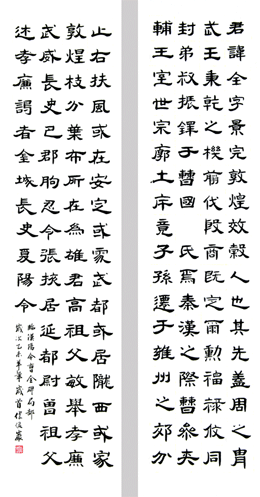 君諱全字景完敦煌效穀人也其先蓋周之胄
武王秉乾之機翦伐殷商既定爾勳福祿攸同
封弟叔振鐸于曹國 氏焉秦漢之際曹參夾
輔王室世宗廓土斥竟子孫遷于雍州之郊分
止右扶風或在安定或處武都或居隴西或家
敦煌枝分葉布所在為雄君高祖父敏舉孝廉
武威長史巴郡朐忍令張掖居延都尉曾祖父
述孝廉謁者金城長史夏陽令
陽令曹全碑局部
歲次乙未羊年歲首